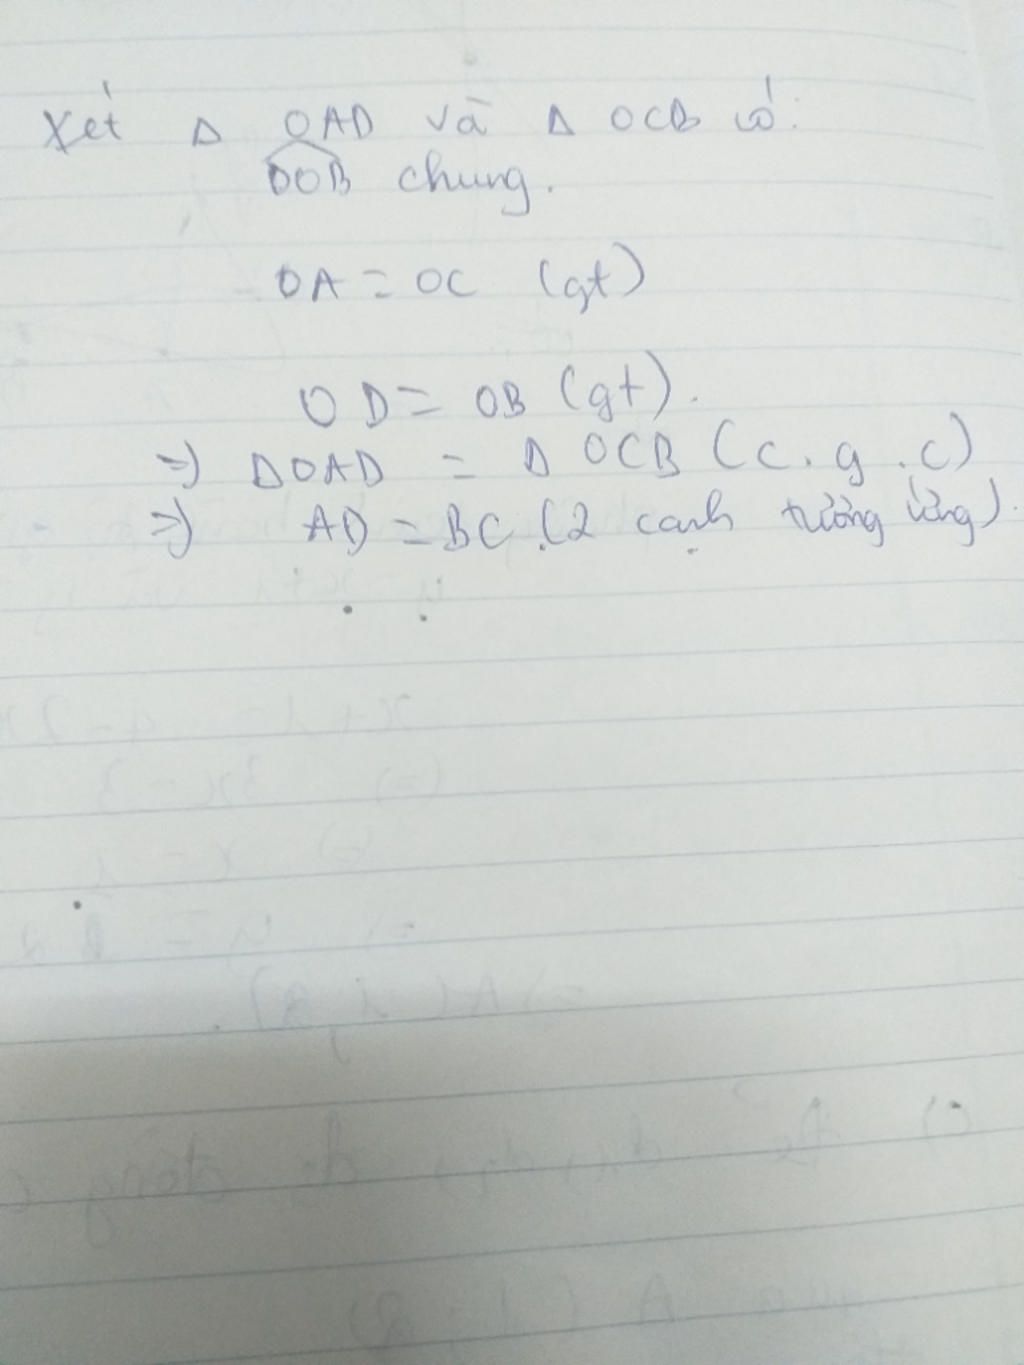 Xét Δ OAD và Δ OCB có:
DOB chung.
OA = OC (gt)
OD = OB (gt).
=> ΔOAD = Δ OCB (c.g.c)
=> AD = BC (2 cạnh tương ứng).